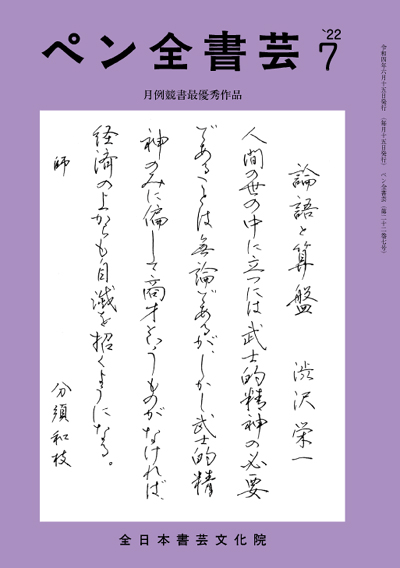 ペン全書芸
'22
7
月例競書最優秀作品
令和四年六月十五日発行（毎月十五日発行）ペン全書芸（第二十二巻七号）
論語と算盤　渋沢栄一
人間の世の中に立つには武士的精神の必要
であることは無論であるが、しかし武士的精
神のみに偏して商才というものがなければ、
経済の上からも自滅を招くようになる。
師　分須和枝
全日本書芸文化院